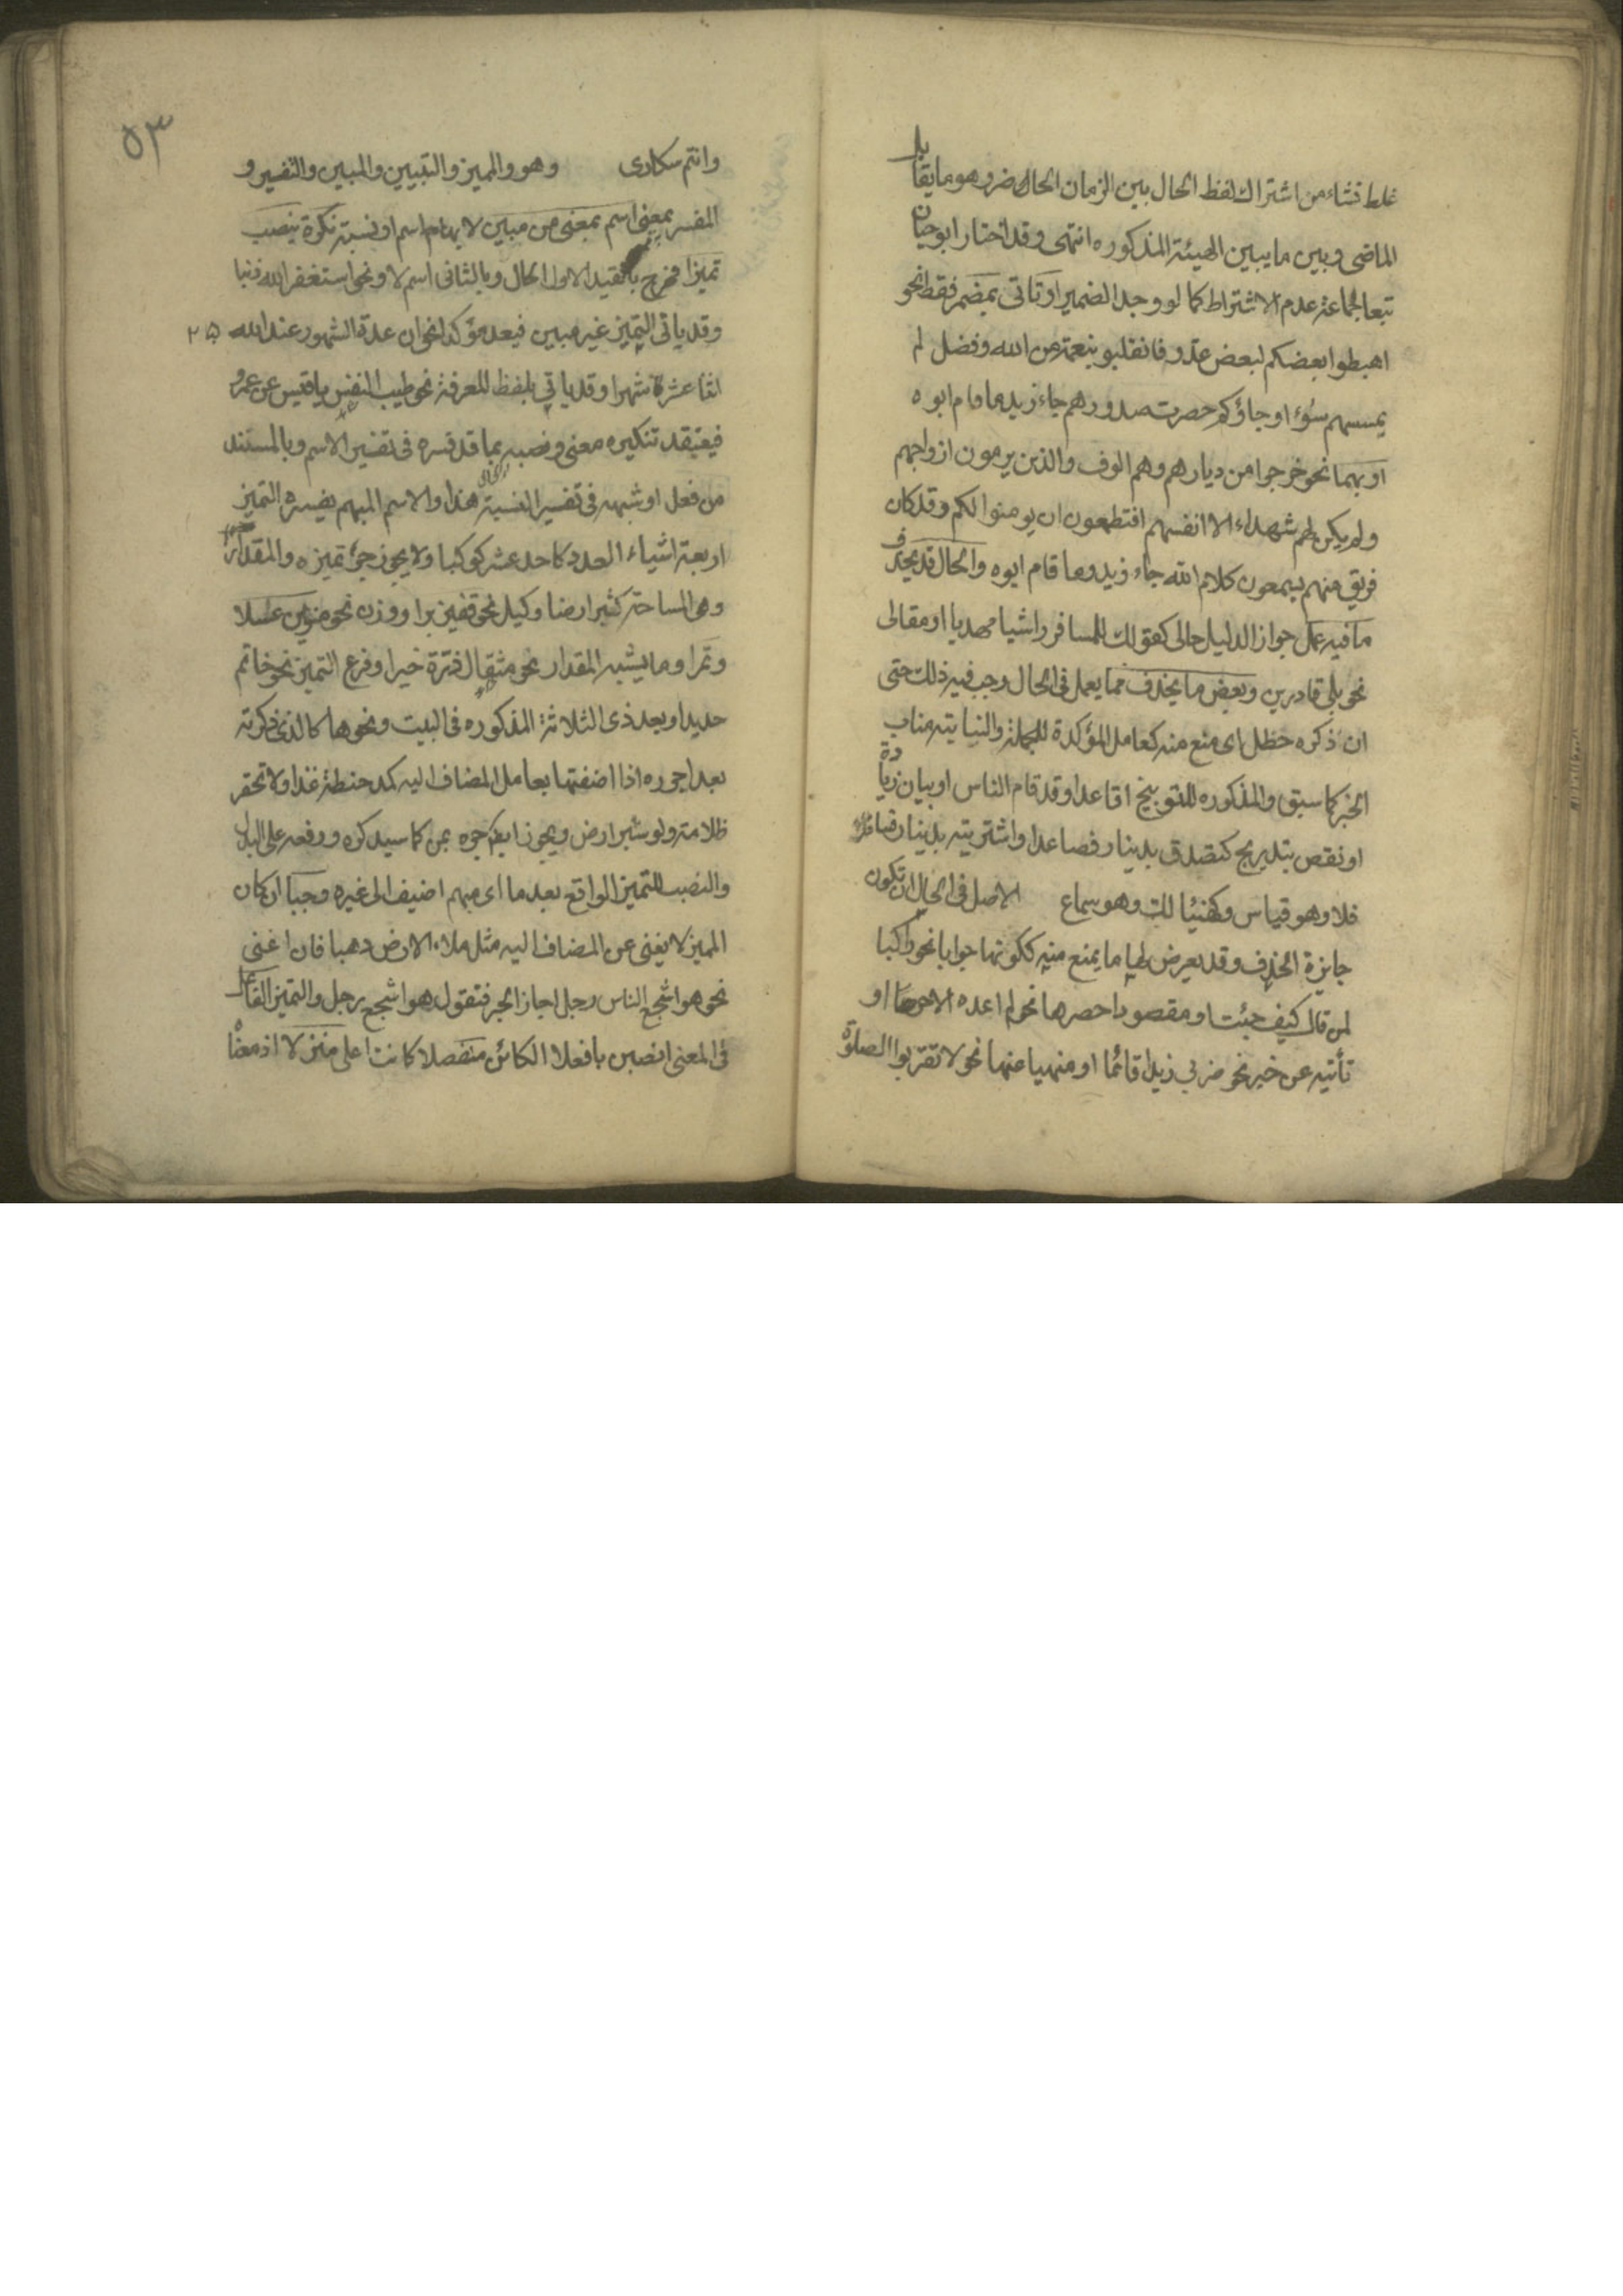 غلط نشاء من اشتراك لفظ الحال بين الزمان الحاضر وهو ما يقابل
الماضى وبين ما يبين الهيئة المذكوره انتهى وقد اختار ابوحيان
تبعا لجماعة عدم الاشتراط كما لو وجد الضمير او تاتى بمضمر فقط نحو
اهبطوا بعضكم لبعض عدو فانقلبو بنعمة من الله وفضل لم
يمسسهم سوء او جاؤكم حصرت صدورهم جاء زيد ما قام ابوه
او بهما نحو خرجوا من ديارهم وهم الوف والذين يرمون ازواجهم
ولم يكن لهم شهداء الا انفسهم افتطمعون ان يومنوا لكم وقد كان
فريق منهم يسمعون كلام الله جاء زيد وما قام ابوه والحال قد يحذف
ما فيه عمل جواز الدليل حالى كقولك للمسافر راشيا مهديا او مقالى
نحو بلى قادرين وبعض ما يحذف مما يعمل فى الحال وجب فيه ذلك حتى
ان ذكره حظل اى منع منه كعامل المؤكدة للجملة والنيابته مناب
الخبر كما سبق والمذكوره للتوبيخ اقاعدا وقد قام الناس او بيان زيادة
او نقص بتدريج كتصدق بدينار فصاعدا واشتريته بدينار فسافلا
فلا وهو قياس وكهنيئا لك وهو سماع الاصل فى الحال ان تكون
جايزة الحذف وقد يعرض لها ما يمنع منه ككونها جوابا نحو راكبا
لمن قال كيف جئت او مقصودا حصرها نحو لم اعده الا حرضا او
تأتيه عن خبر نحو ضربي زيدا قائما او منهيا عنها نحو لا تقربوا الصلوة
٥٣
وانتم سكارى وهو والمميز والتبيين والمبين والتفسير و
المفسر بمعنى اسم بمعنى من مبين لابهام اسم او نسبة نكرة ينصب
تميزا فخرج بالقيد الاول الحال وبالثانى اسم لا ونحو استغفر الله ذنبا
وقد ياتى التميز غير مبين فيعد مؤكدا نحو ان عدة الشهور عند الله
اثنا عشرة شهرا وقد ياتي بلفظ المعرفة نحو طيب النفس يا قيس عن عمرو
فيعتقد تنكيره معنى ونصبه بما قد فسره فى تفسير الاسم وبالمسند
من فعل او شبهه فى تفسير النسبة هذا والاسم المبهم يفسره التميز
اربعة اشياء العدد كاحد عشر كوكبا ولا يجوز جر تميزه والمقدار
وهى المساحة كشبر ارضا وكيل نحو قفيز برا ووزن نحو منوين عسلا
وتمرا وما يشبه المقدار نحو مثقال ذرة خيرا وفرع التميز نحو خاتم
حديدا وبعد ذى الثلاثة المذكوره فى البيت ونحوها كالذى ذكرته
بعد اجرره اذا اضفتها بعامل المضاف اليه كمد حنطة غذا ولا تحقر
ظلامة ولو شبر ارض ويجوز ايضا جره بمن كما سيذكره ورفعه على البدل
والنصب للتميز الواقع بعد ما اى مبهم اضيف الى غيره وجبا ان كان
المميز لا يغنى عن المضاف اليه مثل ملاء الارض ذهبا فان اغنى
نحو هو اشجع الناس رجلا جاز الجر فتقول هو اشجع رجل والتميز الفاعل
فى المعنى انصبن بافعلا الكائن مفصلا كانت اعلى منزلا اذ معناه